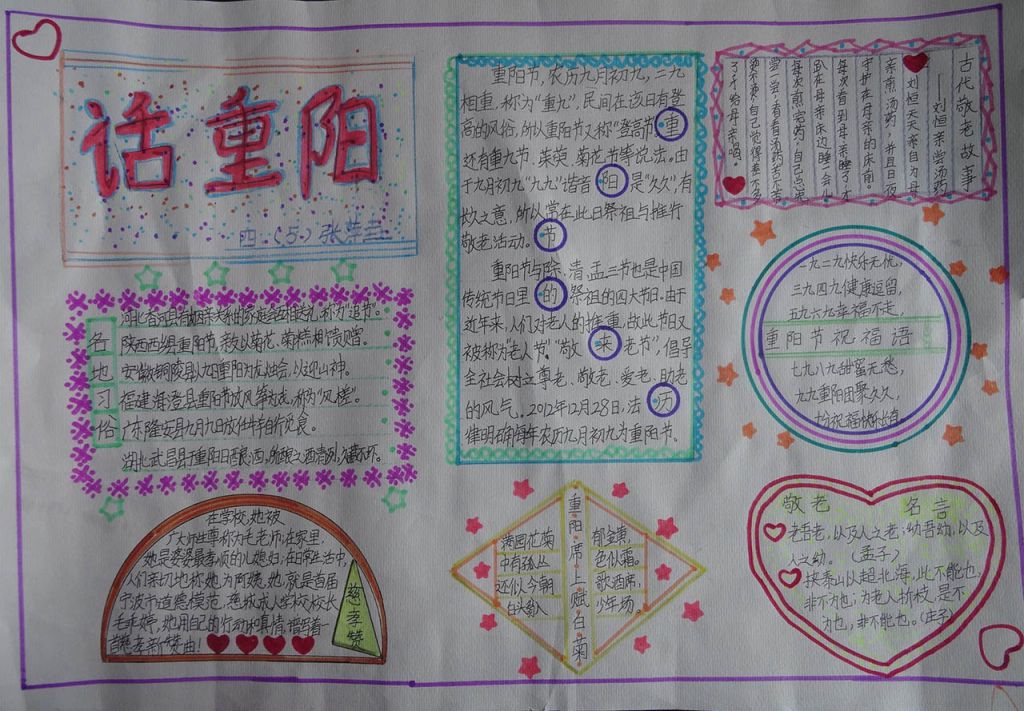 话重阳
四·(5·)张
各地习俗
河北香河县有姻亲关系的家庭会互相送礼,称为"追节"。
陕西西乡县重阳节,亲友以菊花、菊糕相馈赠。
安徽铜陵县以重阳为龙烛会,以迎山神。
福建海澄县重阳节放风筝为戏,称为"风槎"。
广东隆安县九月九日放任牛羊自行觅食。
湖北武昌县于重阳日酿酒,所酿之酒清冽,久藏不坏。
重阳节,农历九月初九,二九
相重,称为"重九",民间在该日有登
高的风俗,所以重阳节又称"登高节"重
还有重九节、茱萸、菊花节等说法。由
于九月初九"九九"谐音阳是"久久",有
长久之意,所以常在此日祭祖与推行
敬老活动。节
重阳节与除、清、盂三节也是中国
传统节日里的祭祖的四大节日。由于
近年来,人们对老人的推重,故此节日又
被称为"老人节""敬来老节",倡导
全社会树立尊老、敬老、爱老、助老
的风气。2012年12月28日,法历
律明确每年农历九月初九为重阳节。
古代敬老故事
——刘恒亲尝汤药
刘恒天天亲自为母
亲煎汤药,并且日夜
守护在母亲的床前。
每次看到母亲睡了,才
趴在母亲床边睡一会儿
每次煎完药,自己总先
尝一尝,看看汤药苦不苦
烫不烫,自己觉得差不多
了,才给母亲喝。
一九二九快乐无忧,
三九四九健康逗留,
五九六九幸福不走,
重阳节祝福语
七九八九甜蜜无愁,
九九重阳团聚久久,
在学校,她被
广大师生尊称为毛老师,在家里,
她是婆婆最孝顺的儿媳妇,在日常生活中,
人们亲切地称她为阿姨,她,就是首届
宁波市道德模范,慈城成人学校校长
毛秉婷,她用自己的行动和真情,谱写着一
首慈孝新"赞曲!
慈孝赞
重阳席上赋白菊
满园花菊
郁金黄,
中有孤丛
色似霜。
还似今朝
歌酒席,
白头翁入
少年场。
敬老 名言
老吾老,以及人之老;幼吾幼,以及
人之幼。(孟子)
挟泰山以超北海,此不能也,
非不为也;为老人折枝,是不
为也,非不能也。(孟子)